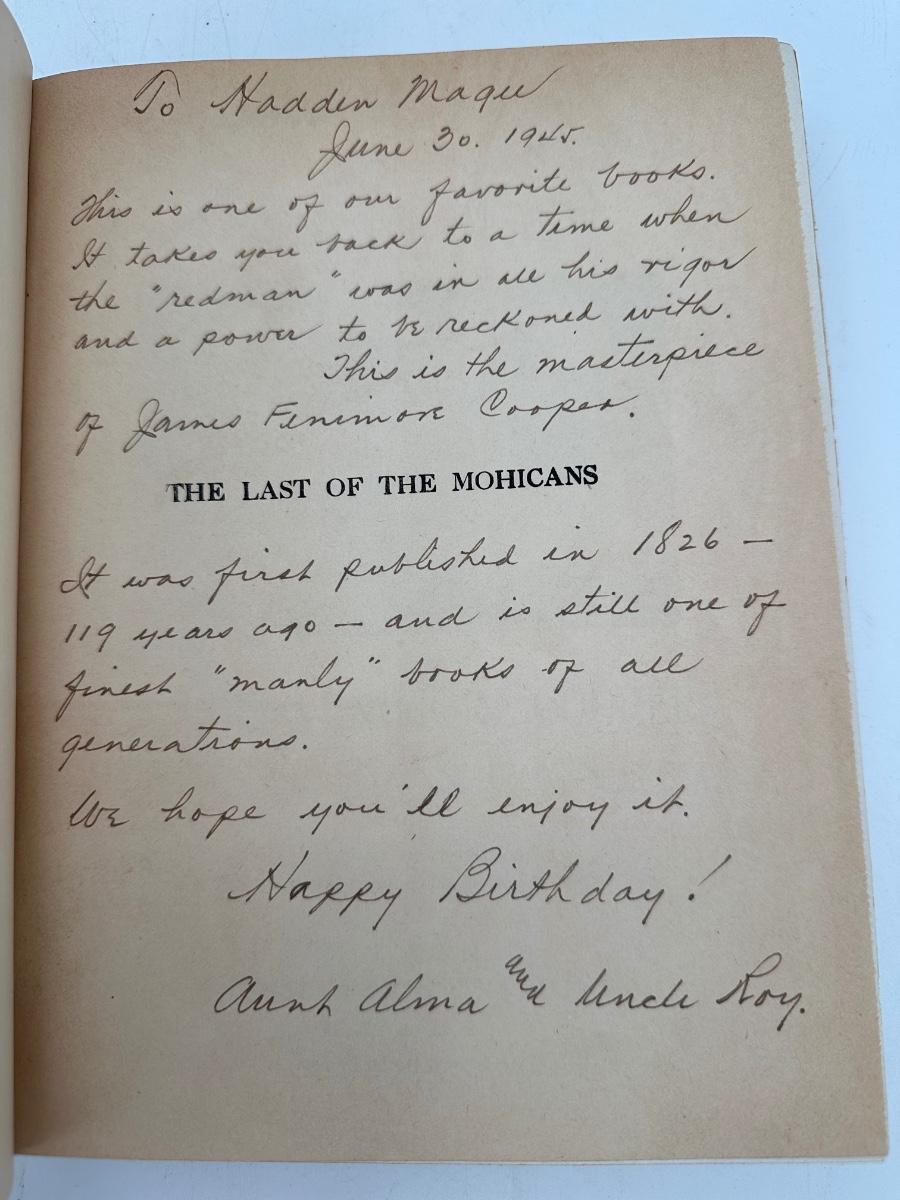 To Hadden Magee
June 30. 1945.
This is one of our favorite books.
It takes you back to a time when
the "redman" was in all his vigor
and a power to be reckoned with.
This is the masterpiece
of James Fenimore Cooper.
THE LAST OF THE MOHICANS
It was first published in 1826 —
119 years ago — and is still one of
finest "manly" books of all
generations.
We hope you'll enjoy it.
Happy Birthday!
Aunt Alma and Uncle Roy.